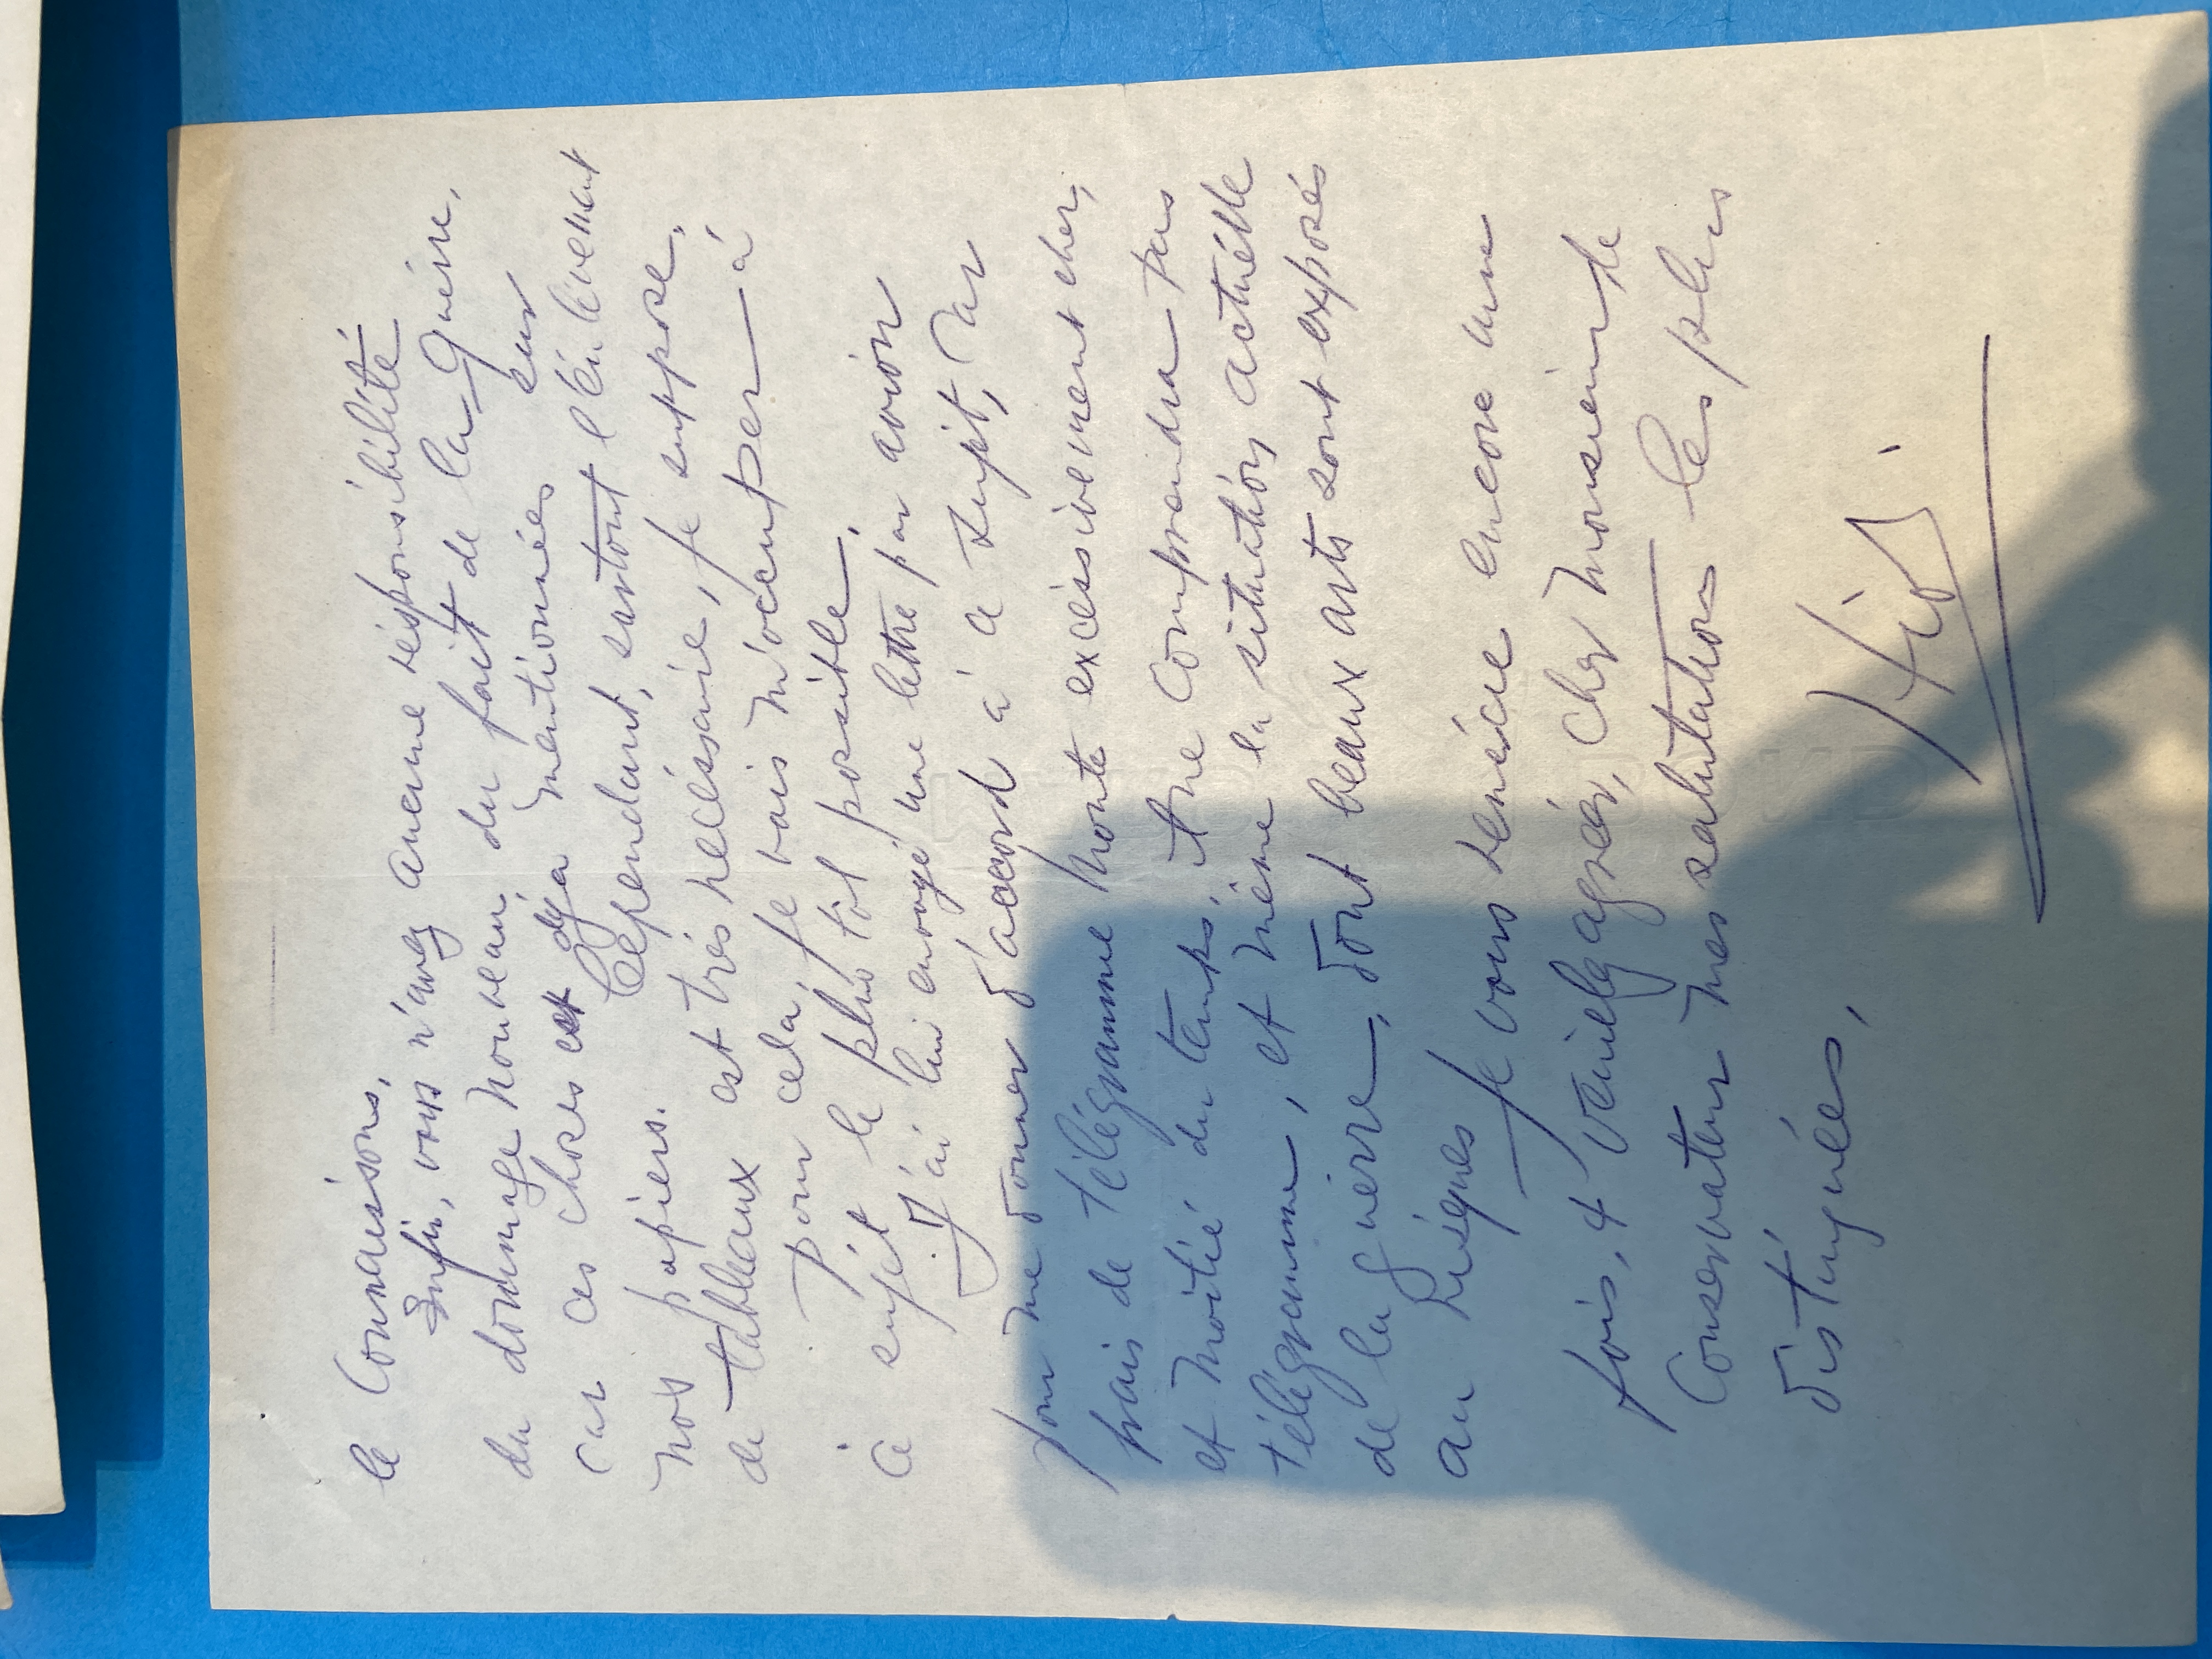 le Connaissons,
Enfin, vous n'avez aucune résponsibilité
du dommage nouveau, du fait de la Guèrre,
car ces choses est déja mentionnées sur
nos papiers. Cependant, surtout l'énlèvement
de tableaux est très nécéssaire, je suppose,
pour cela, je vais m'occuper à
ce sujèt le plus tôt possible,
J'ai lui envoyé une lettre par avion
pour me donner d'accord à ce sujèt, car
frais de télégramme monte excéssivement cher,
et moitié du temps, être comprendra pas
télégramme, et même la situation actuèlle
de la guèrre, dont beaux arts sont exposés
au risques
Je vous remércie encore une
fois, & veuillez agréér, cher monsieur le
Conservateur mes salutations les plus
distinguées,